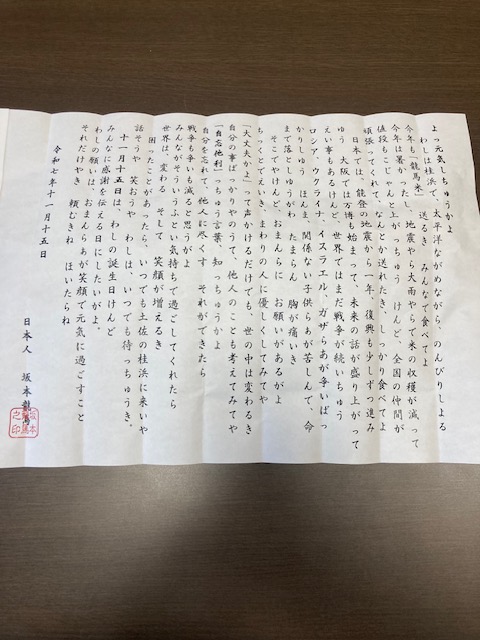 よっ元気しちゅうかよ
わしは桂浜で、太平洋ながめながら、のんびりしよる
今年も「龍馬米」送るき みんなで食べてよ
今年は暑かったし、地震やら大雨やらで米の収穫が減って
値段もこじゃんと上がっちゅう けんど、全国の仲間が
頑張ってくれて、なんとか送れたき、しっかり食べてよ
日本では、能登の地震から一年、復興も少しずつ進み
ゆう 大阪では万博も始まって、未来の話が盛り上がって
えい事もあるけんど、世界ではまだ戦争が続いちゅう
ロシア、ウクライナ、イスラエル、ガザらあが争いばっ
かりしゆう ほんま、関係ない子供らあが苦しんで、命
まで落としゆうがわ たまらん 胸が痛いき
そこでやけんど、おまんらに お願いがあるがよ
ちっくとでえいき、まわりの人に優しくしてみてや
「大丈夫かよ」って声かけるだけでも、世の中は変わるき
自分の事ばっかりやのうて、他人のことも考えてみてや
「自忘他利」っちゅう言葉、知っちゅうかよ
自分を忘れて、他人に尽くす それができたら
戦争も争いも減ると思うがよ
みんながそういうふとい気持ちで過ごしてくれたら
世界は、変わる そして 笑顔が増えるき
困ったことがあったら、いつでも土佐の桂浜に来いや
話そうや 笑おうや わしは、いつでも待っちゅうき。
十一月十五日は、わしの誕生日けんど
みんなに感謝を伝える日にしたいがよ。
わしの願いは、おまんらぁが笑顔で元気に過ごすこと
それだけやき 頼むきね ほいたらね
令和七年十一月十五日
日本人 坂本龍馬
坂本龍馬之印